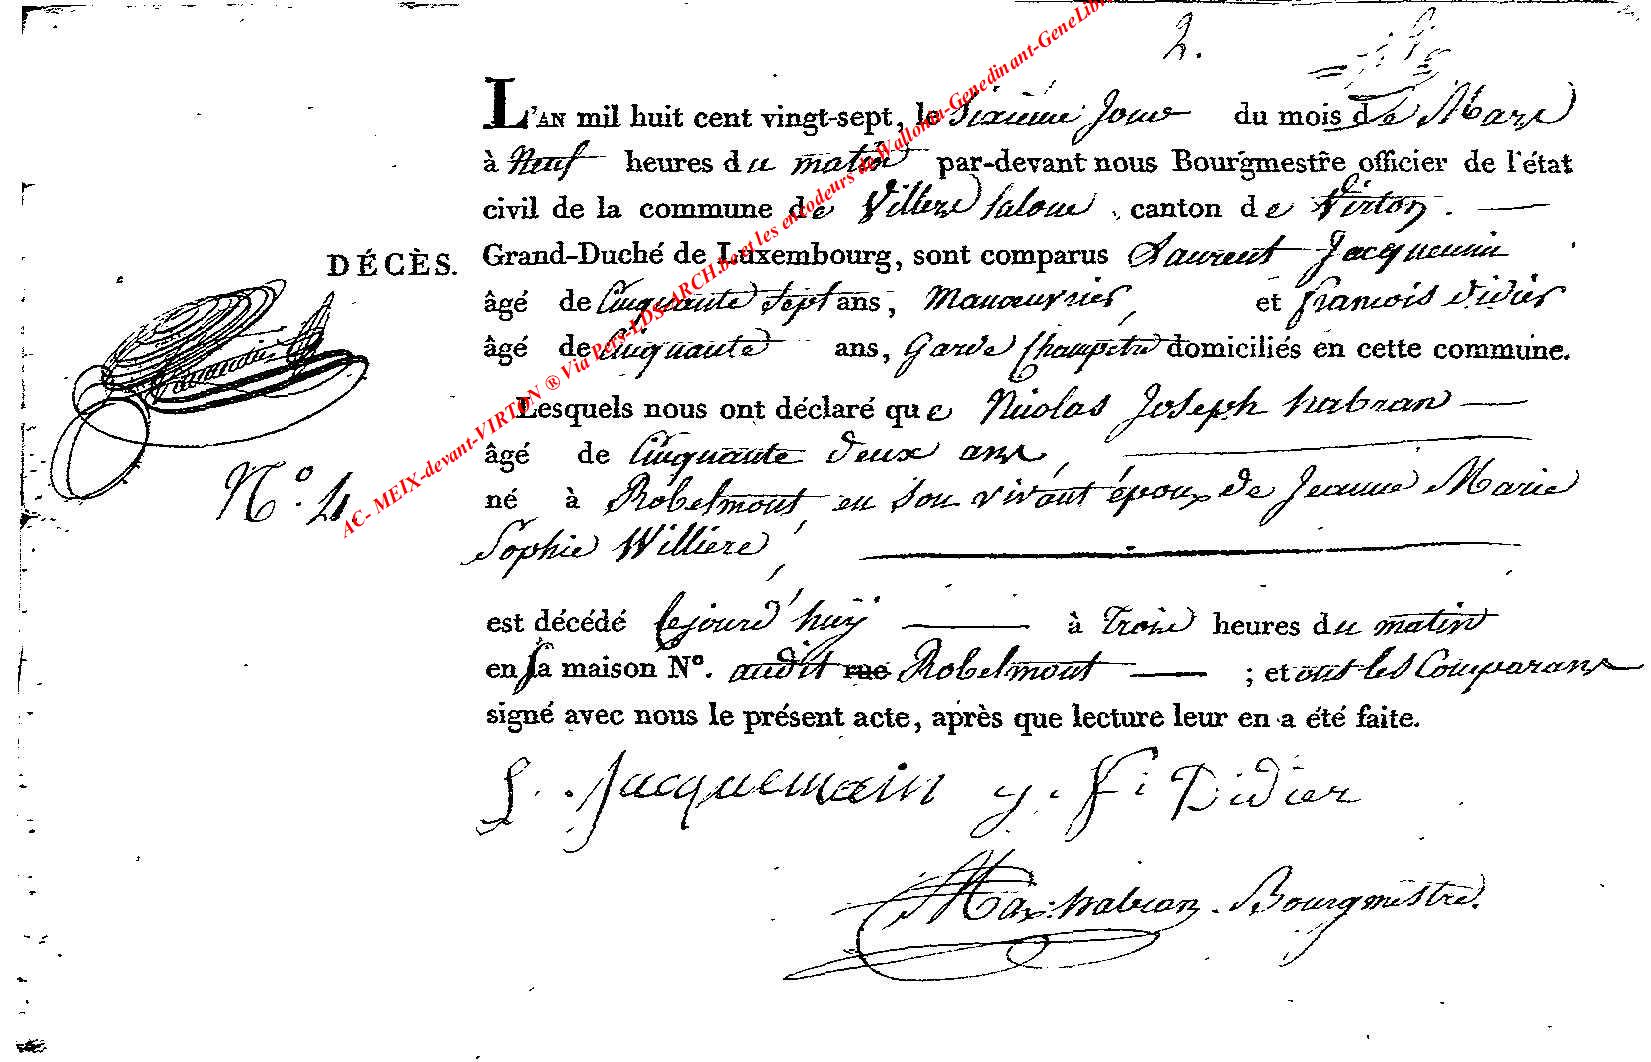 2.
L'AN mil huit cent vingt-sept, le Sixieme Jour du mois de Mars
à Neuf heures du matin par-devant nous Bourgmestre officier de l'état
civil de la commune de Villers Laloue, canton de Virton.
DÉCÈS.
Grand-Duché de Luxembourg, sont comparus Laurent Jacquemin
âgé de Cinquante Sept ans, Manoeuvrier, et francois Didier
âgé de Cinquante ans, Garde Champetre domiciliés en cette commune.
Lesquels nous ont déclaré que Nicolas Joseph habran
âgé de Cinquante deux ans,
né à Robelmont en Son vivant époux de Jeanne Marie
Sophie Williere,
N.° 4
est décédé cejourd'huy à Trois heures du matin
en Sa maison N°. audit rue Robelmont ; et ont les Comparans
signé avec nous le présent acte, après que lecture leur en a été faite.
L. Jacquemain y. F. Didier
Max habran. Bourgmestre.
AC- MEIX-devant-VIRTON ® Via Pers-LDS-ARCH.be et les encodeurs de Wallonia-Genedinant-GeneLibr